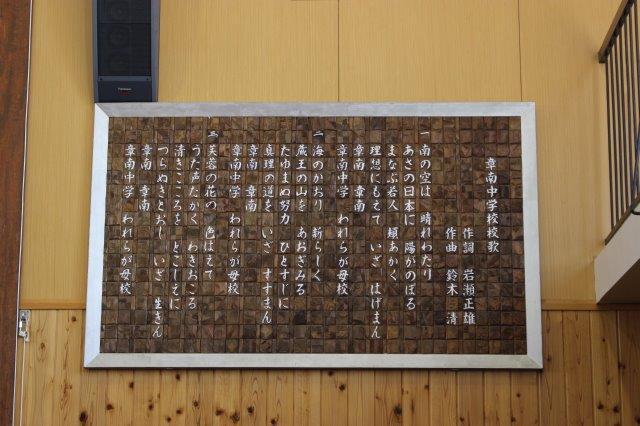 章南中学校校歌
作詞 岩瀬正雄
作曲 鈴木 清
一 南の空は 晴れわたり
あさの日本に 陽がのぼる
まなぶ若人 頬あかく
理想にもえて いざ はげまん
章南 章南
章南中学 われらが母校
二 海のかおり 新らしく
蔵王の山を あおぎみる
たゆまぬ努力 ひとすじに
真理の道を いざ すすまん
章南 章南
章南中学 われらが母校
三 芙蓉の花の 色はえて
うた声たかく わきおこる
清きこころを とこしえに
つらぬきとおし いざ 生きん
章南 章南
章南中学 われらが母校